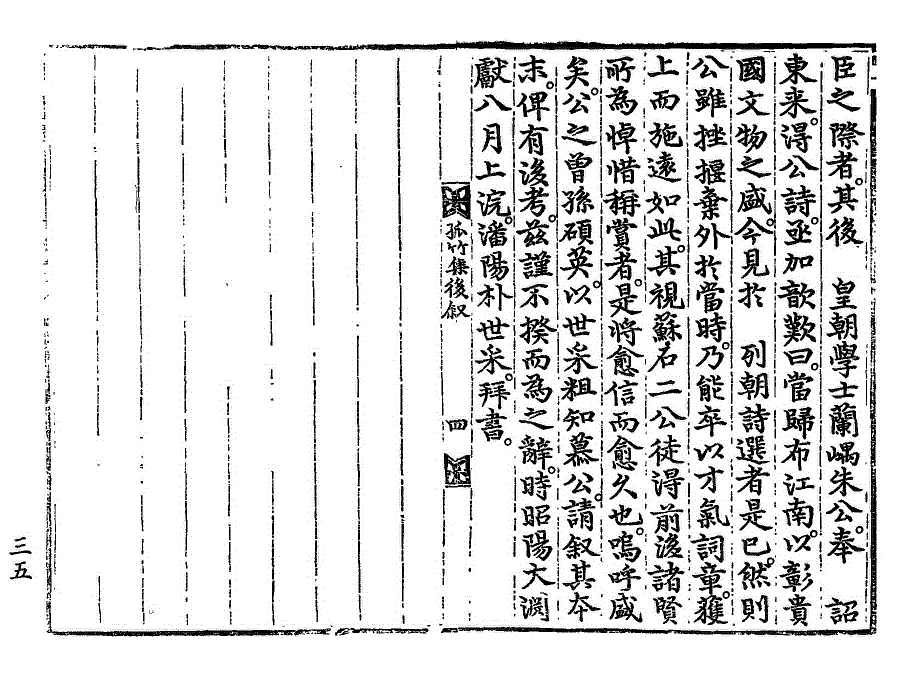 臣之際者。其後 皇朝學士蘭嵎朱公。奉 詔
東来。得公詩。亟加歆歎曰。當歸布江南。以彰貴
國文物之盛。今見於 列朝詩選者是已。然則
公雖挫揠棄外於當時。乃能卒以才氣詞章。獲
上而施遠如此。其視蘇石二公徒得前後諸賢
所為悼惜稱賞者。是將愈信而愈久也。嗚呼盛
矣。公之曾孫碩英。以世采粗知慕公。請叙其夲
末。俾有後考。玆謹不揆而為之辭。時昭陽大淵
獻八月上浣。潘陽朴世采。拜書。
孤竹集後叙
四
三五